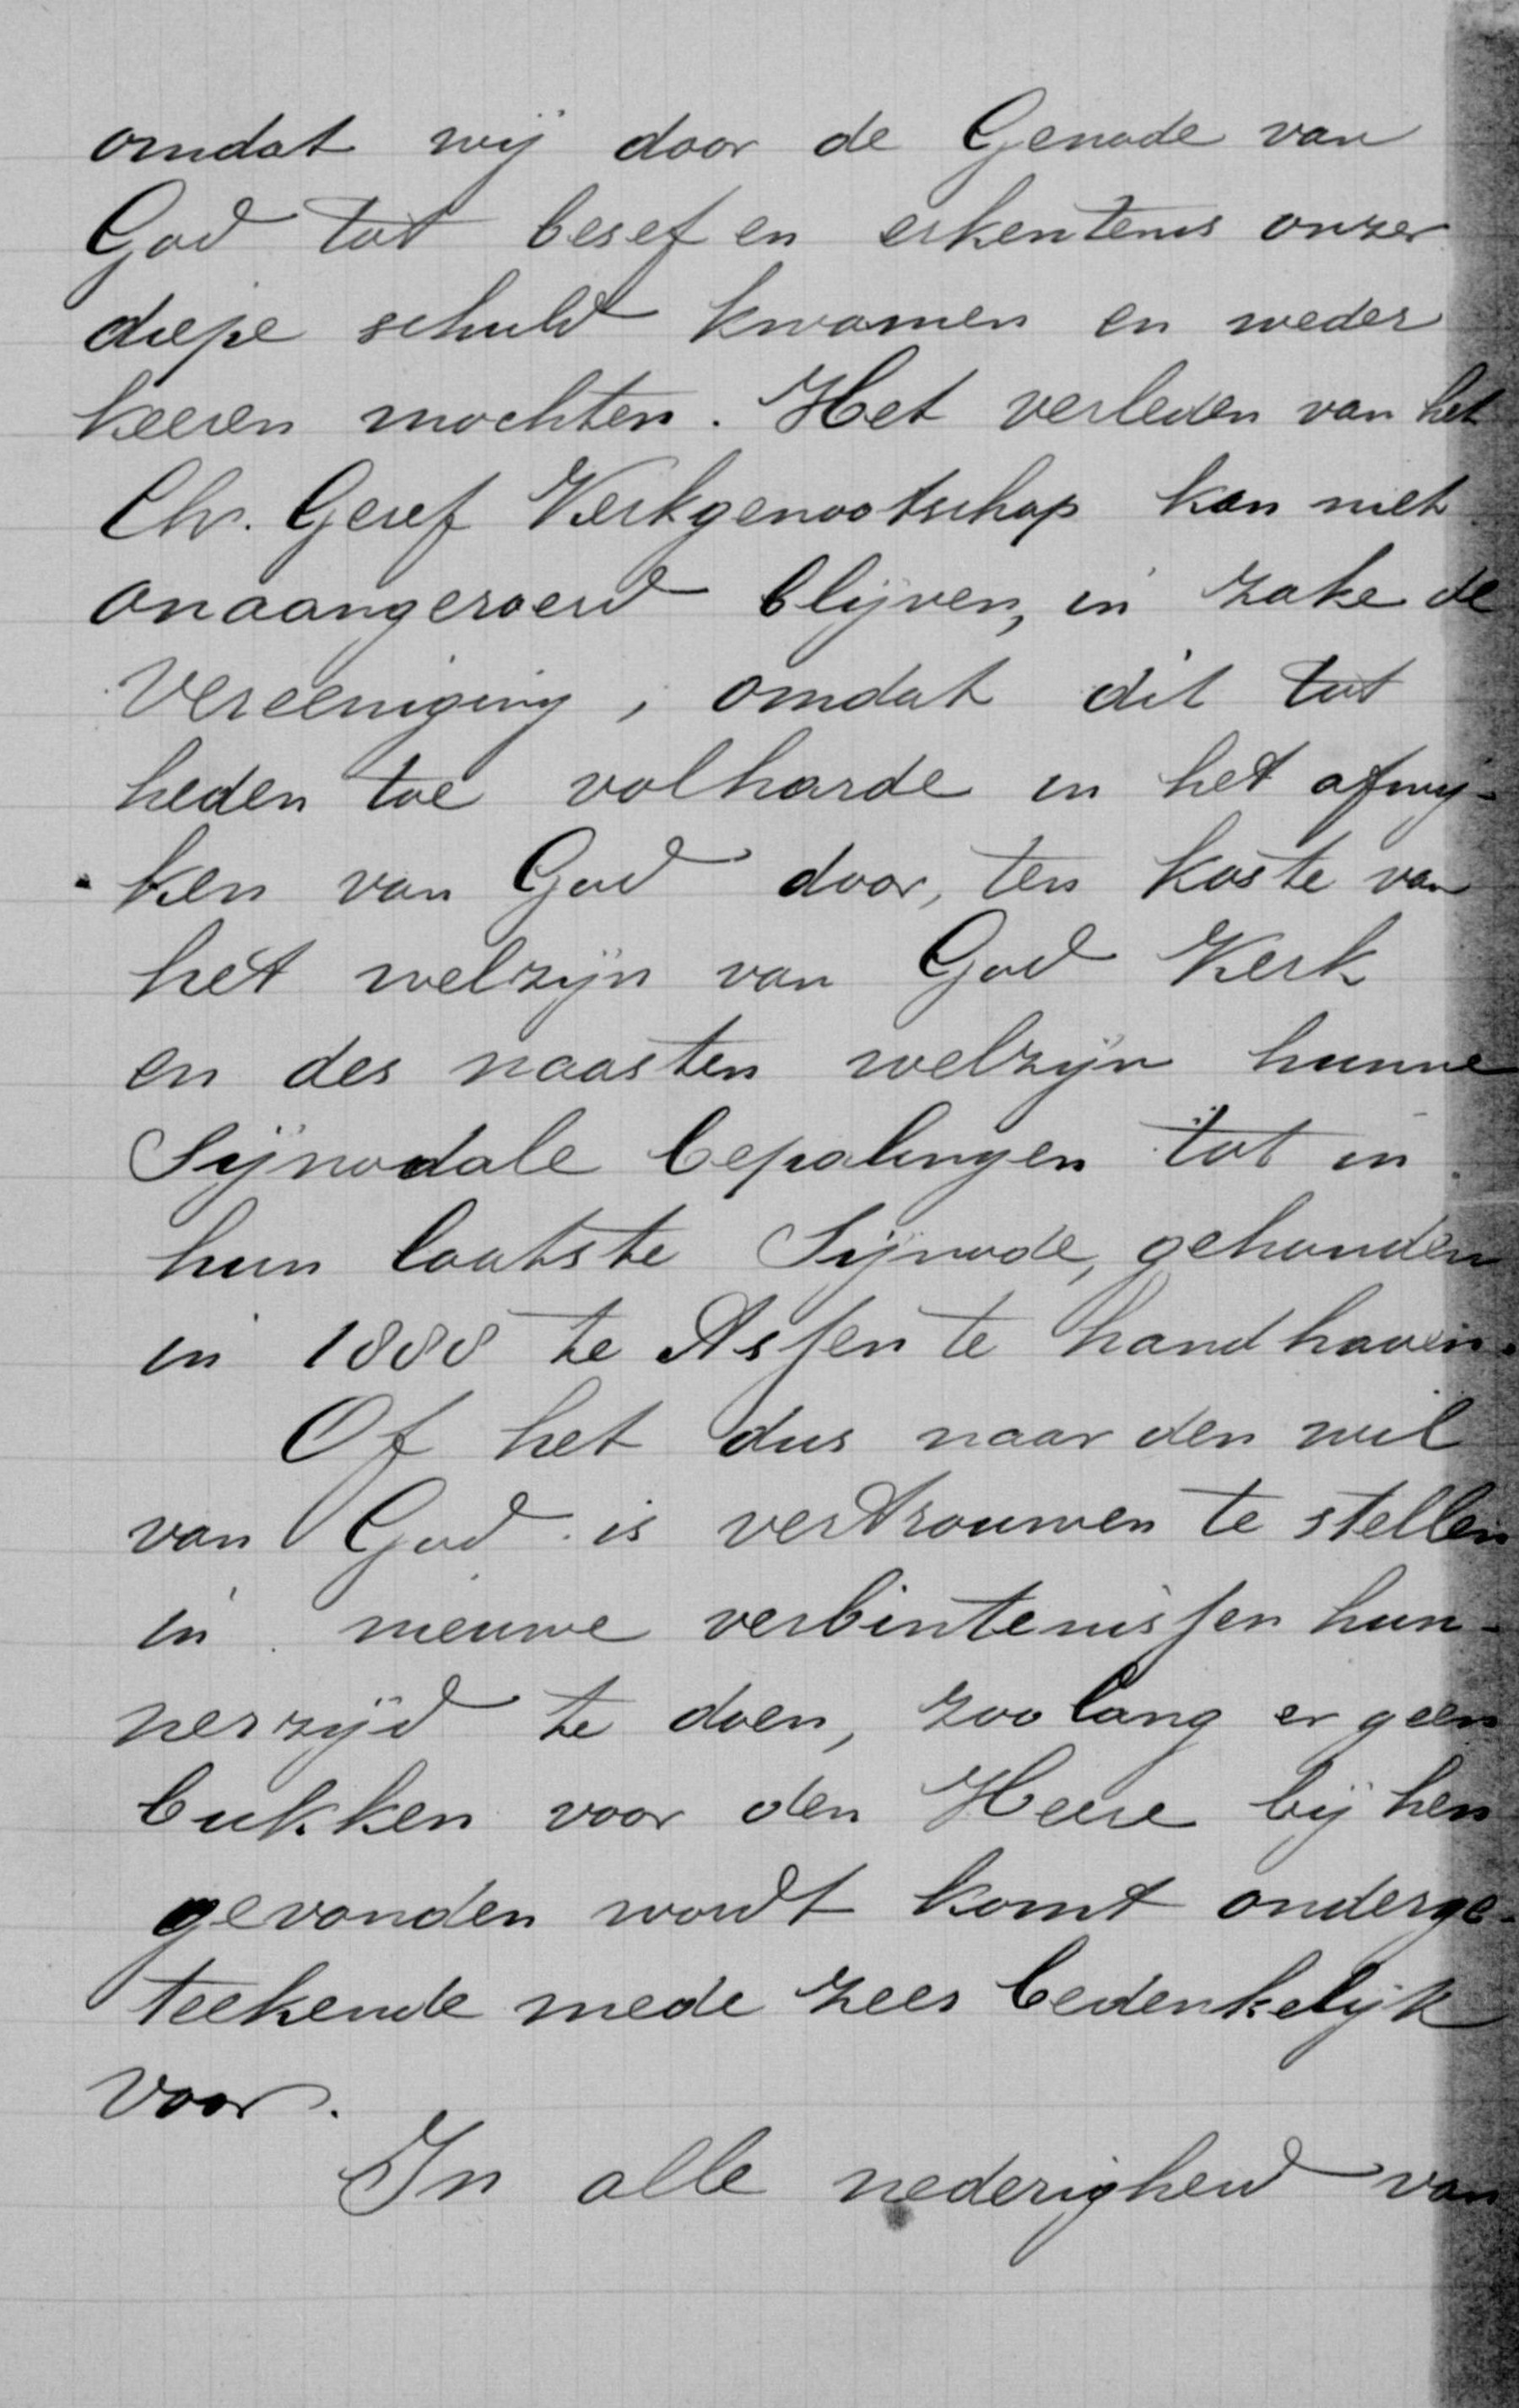 omdat wij door de Genade van
God tot besef en erkentenis onzer
diepe schuld kwamen en weder
keeren mochten. Het verleden van het
Chr. Geref Kerkgenootschap kan niet
onaangeroerd blijven, in zake de
Vereeniging, omdat dit tot
heden toe volharde in het afwij-
ken van God door, ten koste van
het welzijn van God Kerk
en des naasten welzijn hunne
Sijnodale bepalingen tot in
hun laatste Sijnode, gehouden
in 1888 te Assen te handhaven.
Of het dus naar den wil
van God is vertrouwen te stellen
in nieuwe verbintenissen hun-
nerzijd te doen, zoolang er geen
bukken voor den Heere bij hen
gevonden wordt komt onderge-
teekende mede zeer bedenkelijk
voor.
In alle nederigheid van